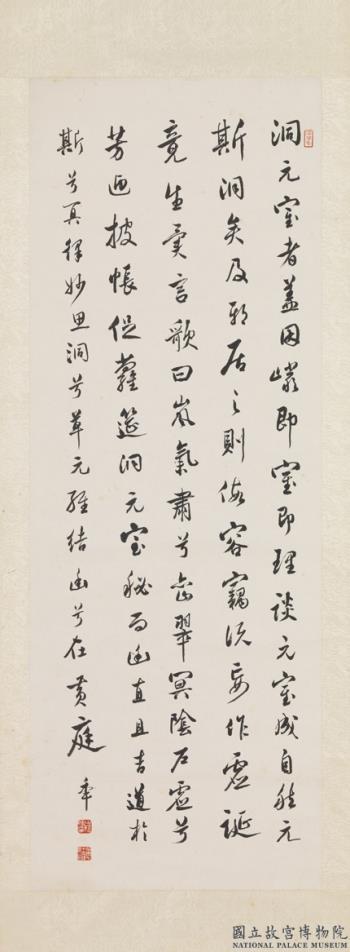 洞元室者蓋因巖即室即理談元室成自然元
斯洞矣及邪居之則假容竊次妄作虛誕
竟生異言歌曰嵐氣肅兮岩翠冥陰戶虛兮
芳迎披帳促蘿筵洞元室秘而幽直且吉道於
斯兮冥擇妙思洞兮草元經結幽兮在黃庭
國立故宮博物院
NATIONAL PALACE MUSEUM